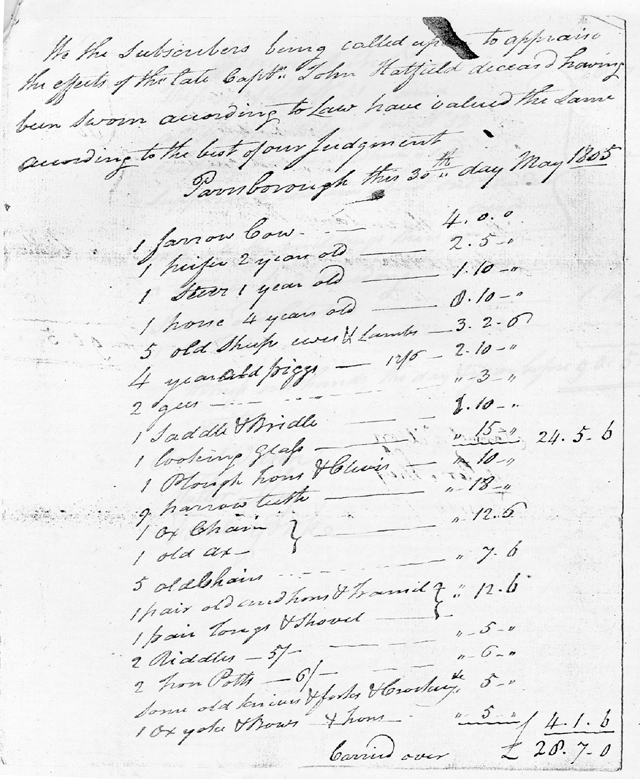 We the Subscribers being called upon to appraise
the effects of the late Capt.n John Hatfield deceasd having
been Sworn according to Law have valued the Same
according to the best of our Judgment
Parrsborough this 30th day May 1805
1 farrow Cow 4.0.0
1 heifer 2 year old 2.5 "
1 Steer 1 year old 1.10 "
1 horse 4 years old 8.10 "
5 old Sheep ewes & Lambs 3.2.6
4 year old piggs 12/6 2.10 "
2 gees " 3 "
1 Saddle & Bridle 1.10 "
1 looking Glass " 15 " 24.5.6
1 Plough Irons & Clevis " 10 "
9 harrow teeth " 18 "
1 Ox Chain } " 12.6
1 old ax
5 old Chairs " 7.6
1 pair old andIrons & Tramil } " 12.6
1 pair Tongs & Shovel
2 Riddles 5/ " 5 "
2 Iron Potts 6/ " 6 "
Some old knives & forks & Crockery 5 "
1 Ox yoke & Bows & Irons " 5 " £ 4.1.6
Carried over £ 28.7.0